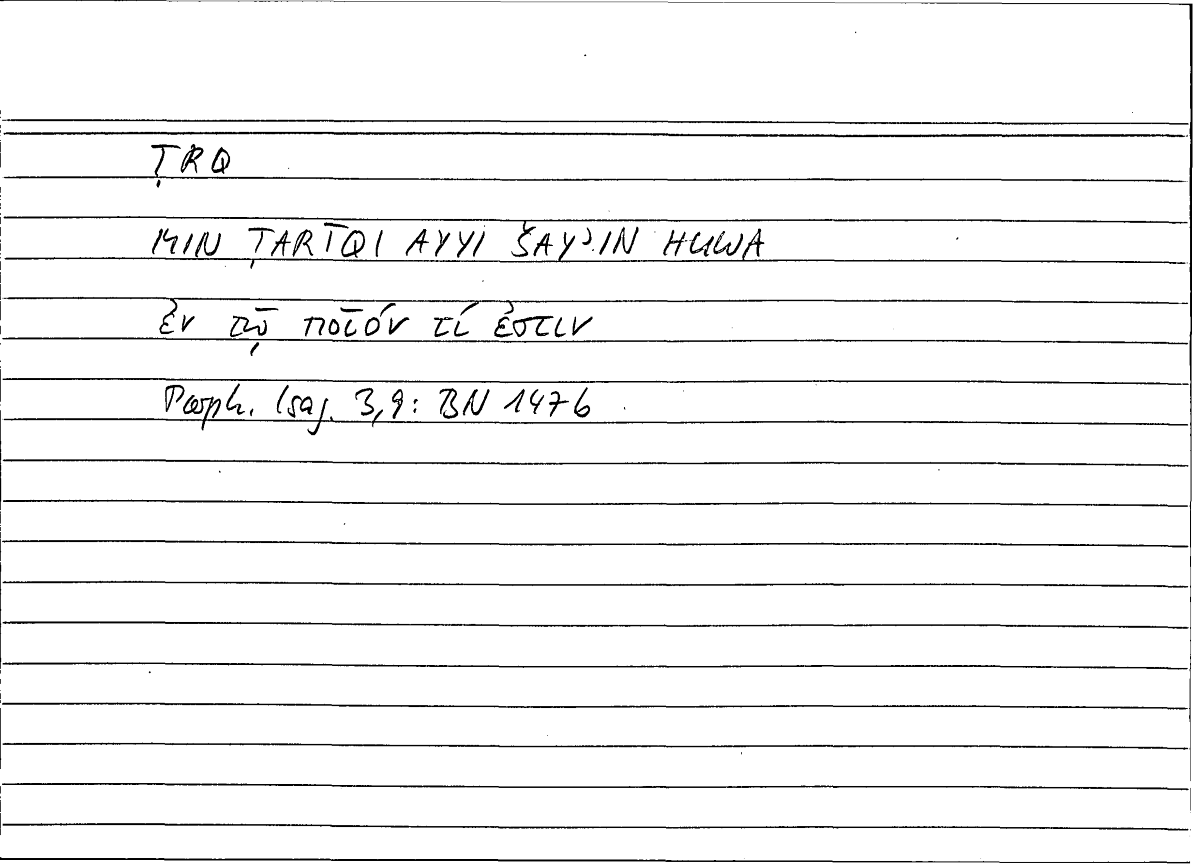 ṬRQ
MIN ṬARĪQI AYYI ŠAYʾIN HUWA
ἐν τῷ ποῖόν τί ἐστιν
Porph. Isag. 3,9: BN 147b